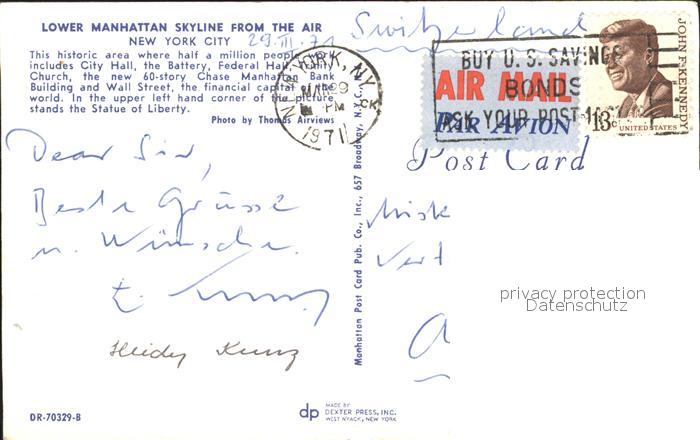 LOWER MANHATTAN SKYLINE FROM THE AIR
NEW YORK CITY 29.III.71
This historic area where half a million people work
includes City Hall, the Battery, Federal Hall, Trinity
Church, the new 60-story Chase Manhattan Bank
Building and Wall Street, the financial capital of the
world. In the upper left hand corner of the picture
stands the Statue of Liberty.
Photo by Thomas Airviews
Dear Sir,
Beste Grüsse
u. Wünsche.
Heidy Kunz
DR-70329-B
Manhattan Post Card Pub. Co., Inc., 657 Broadway, N.Y.C., N.Y.
NEW YORK, N.Y.
MAR 29
PM
1971
Switzerland
BUY U.S. SAVINGS
BONDS
ASK YOUR POST
AIR MAIL
PAR AVION
JOHN F. KENNEDY
13c UNITED STATES
Post Card
A
privacy protection
Datenschutz
dp MADE BY
DEXTER PRESS, INC.
WEST NYACK, NEW YORK